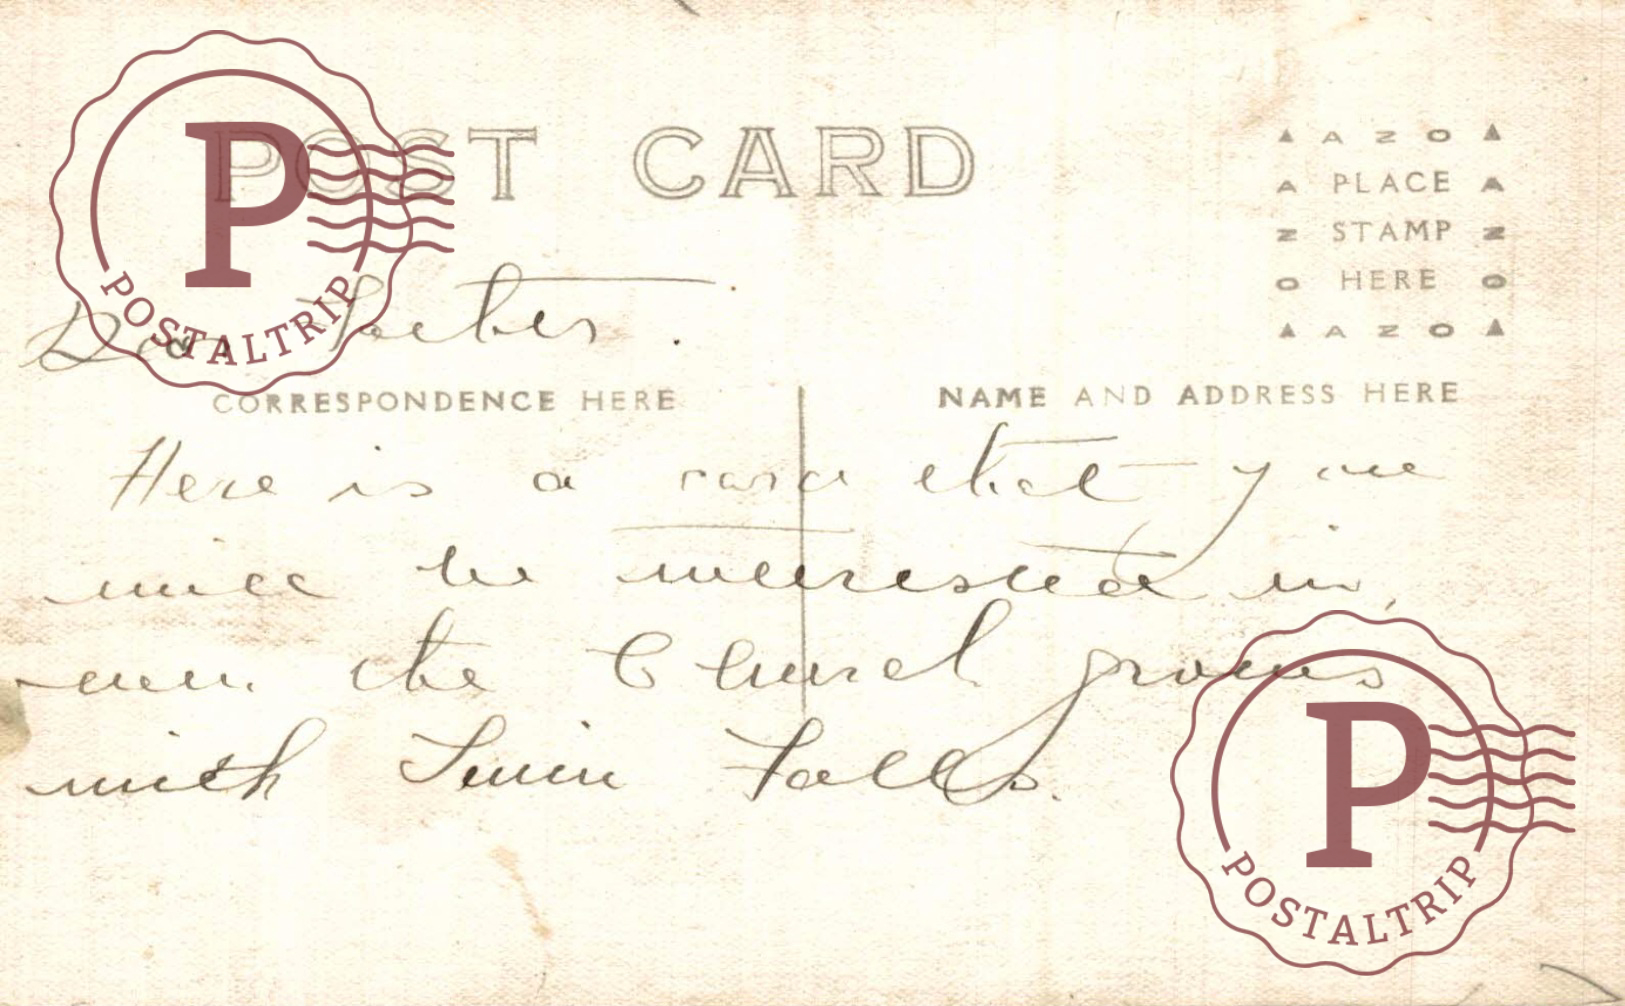 POST CARD
P
POSTALTRIP
AZO
PLACE
STAMP
HERE
AZO
CORRESPONDENCE HERE
NAME AND ADDRESS HERE
Here is a that you
will be interested in,
even the Church grows
with Twin Falls.
P
POSTALTRIP